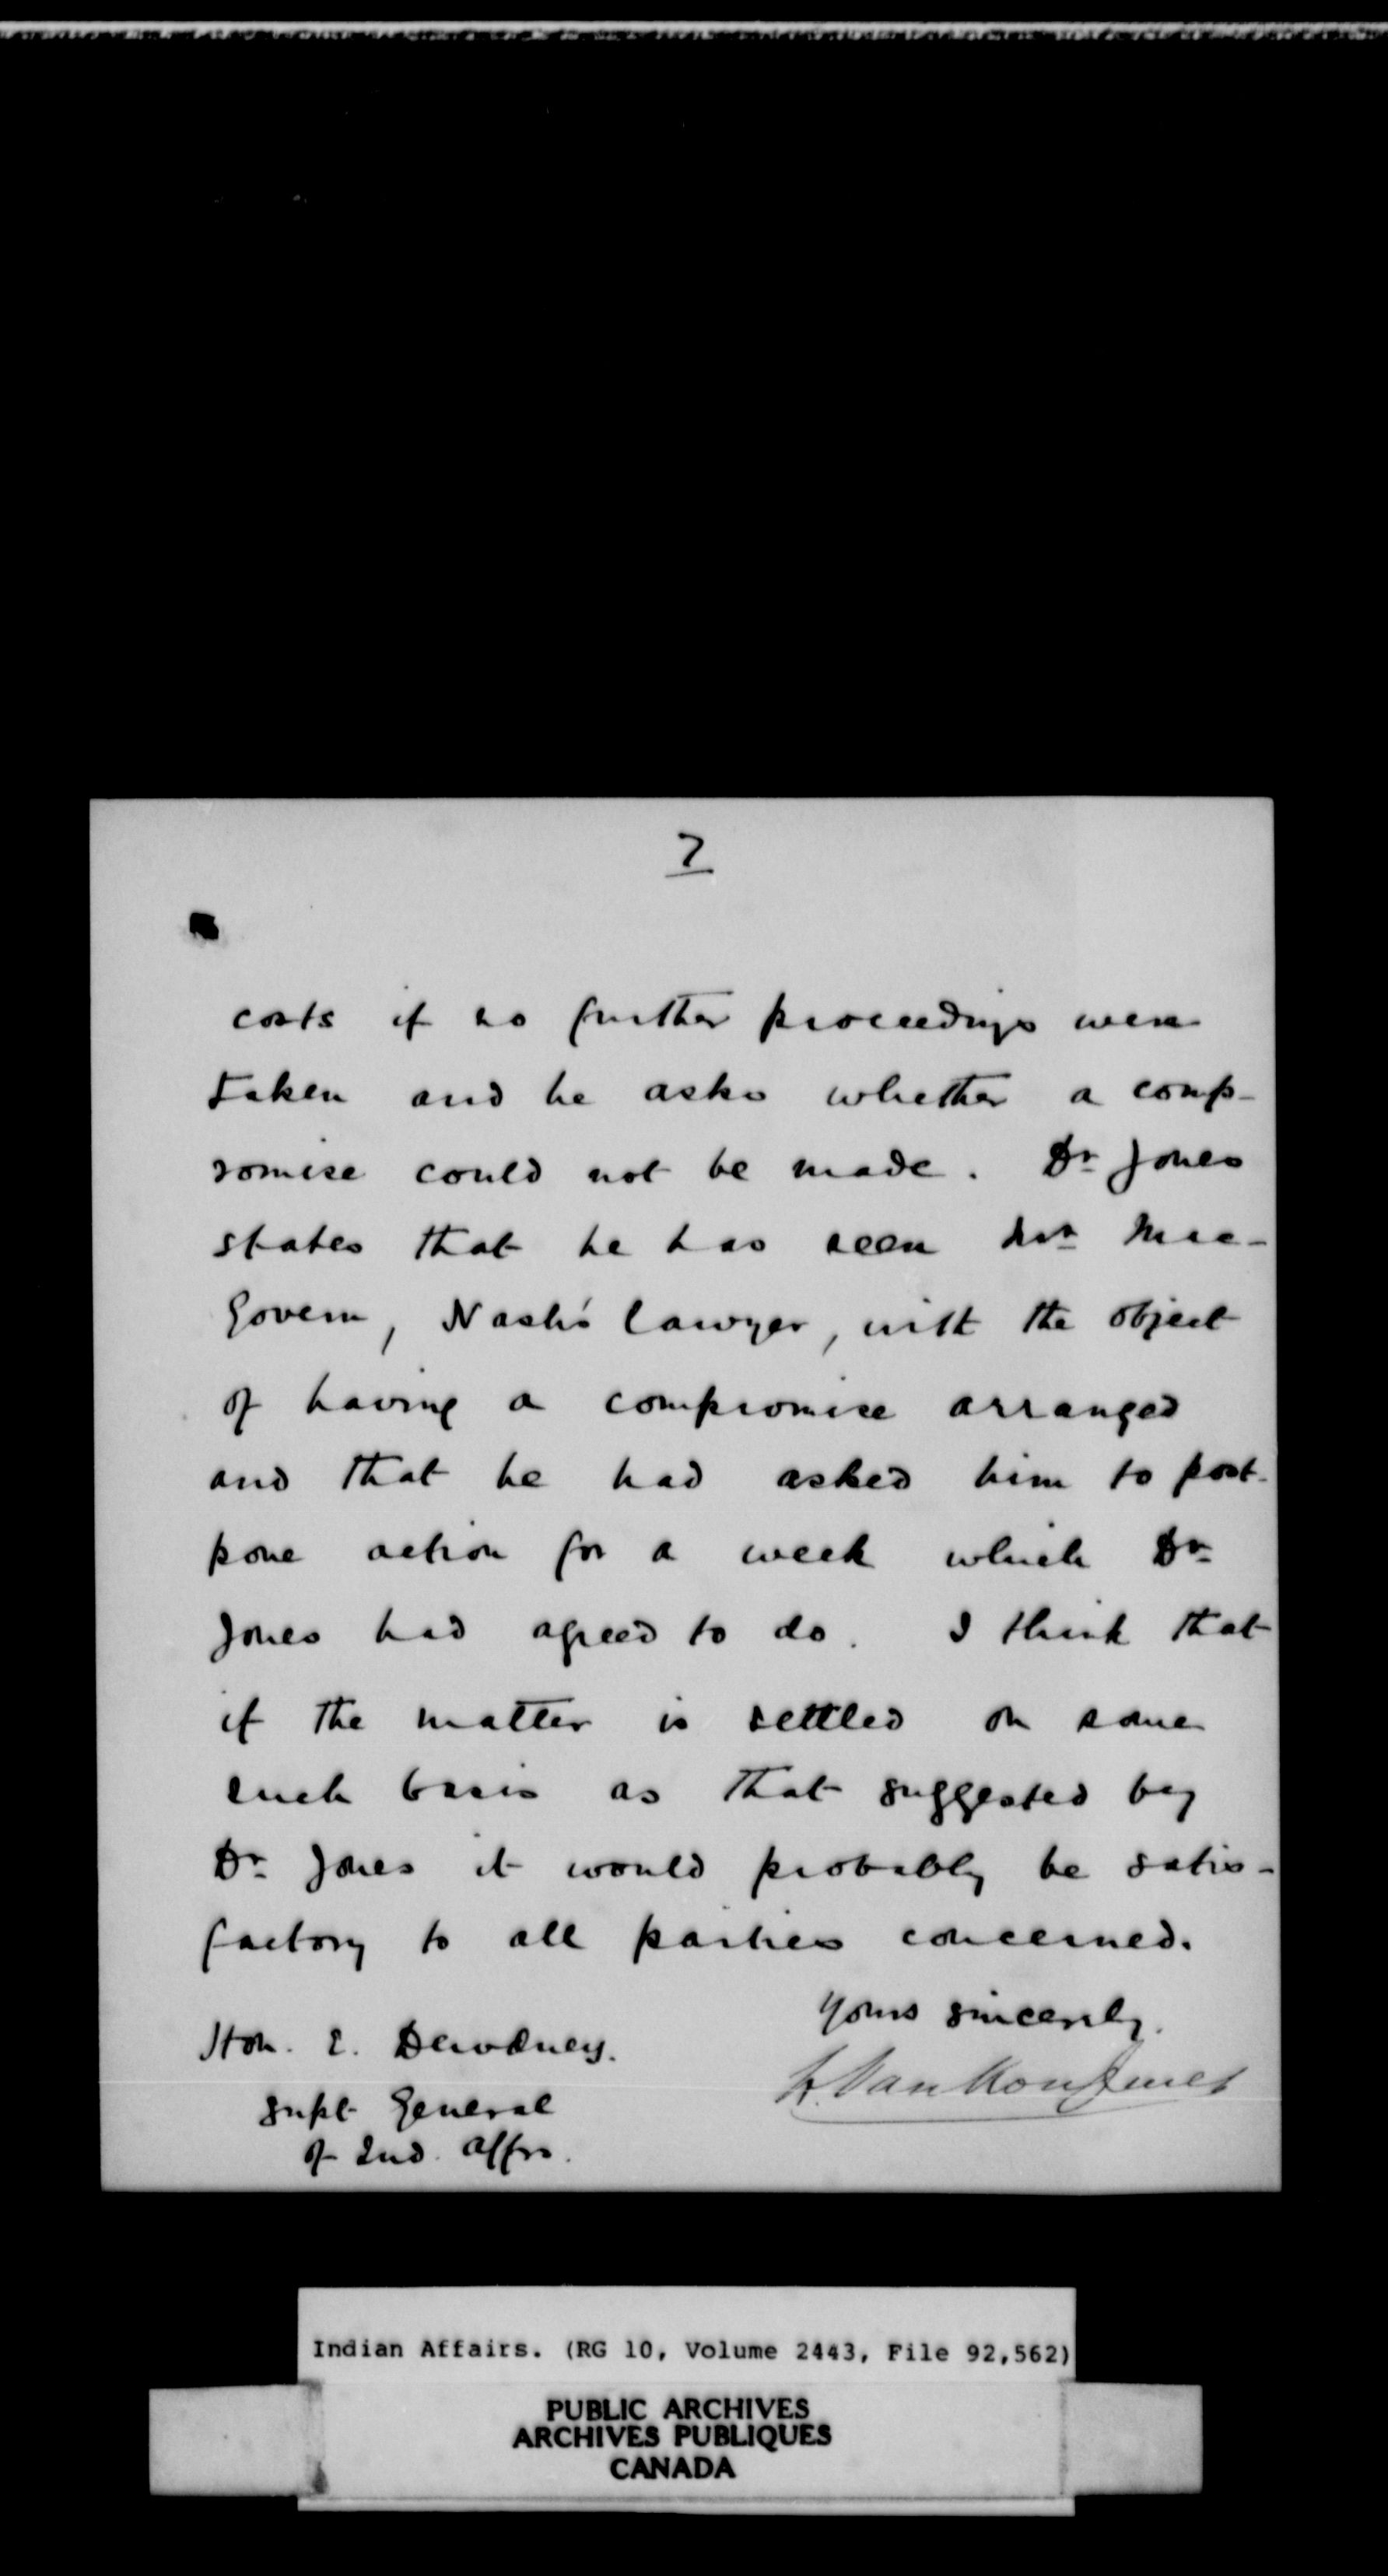 7
costs if no further proceedings were
taken and he asks whether a comp-
romise could not be made. Dr Jones
states that he has seen Mr Mac-
Govern, Nash's lawyer, with the object
of having a compromise arranged
and that he had asked him to post-
pone action for a week which Dr
Jones had agreed to do. I think that
if the matter is settled on some
such basis as that suggested by
Dr Jones it would probably be satis-
factory to all parties concerned.
Yours sincerely.
L. VanKoughnet
Hon. E. Dewdney.
Supt General
of Ind. Affrs.
Indian Affairs. (RG 10, Volume 2443, File 92,562)
PUBLIC ARCHIVES
ARCHIVES PUBLIQUES
CANADA